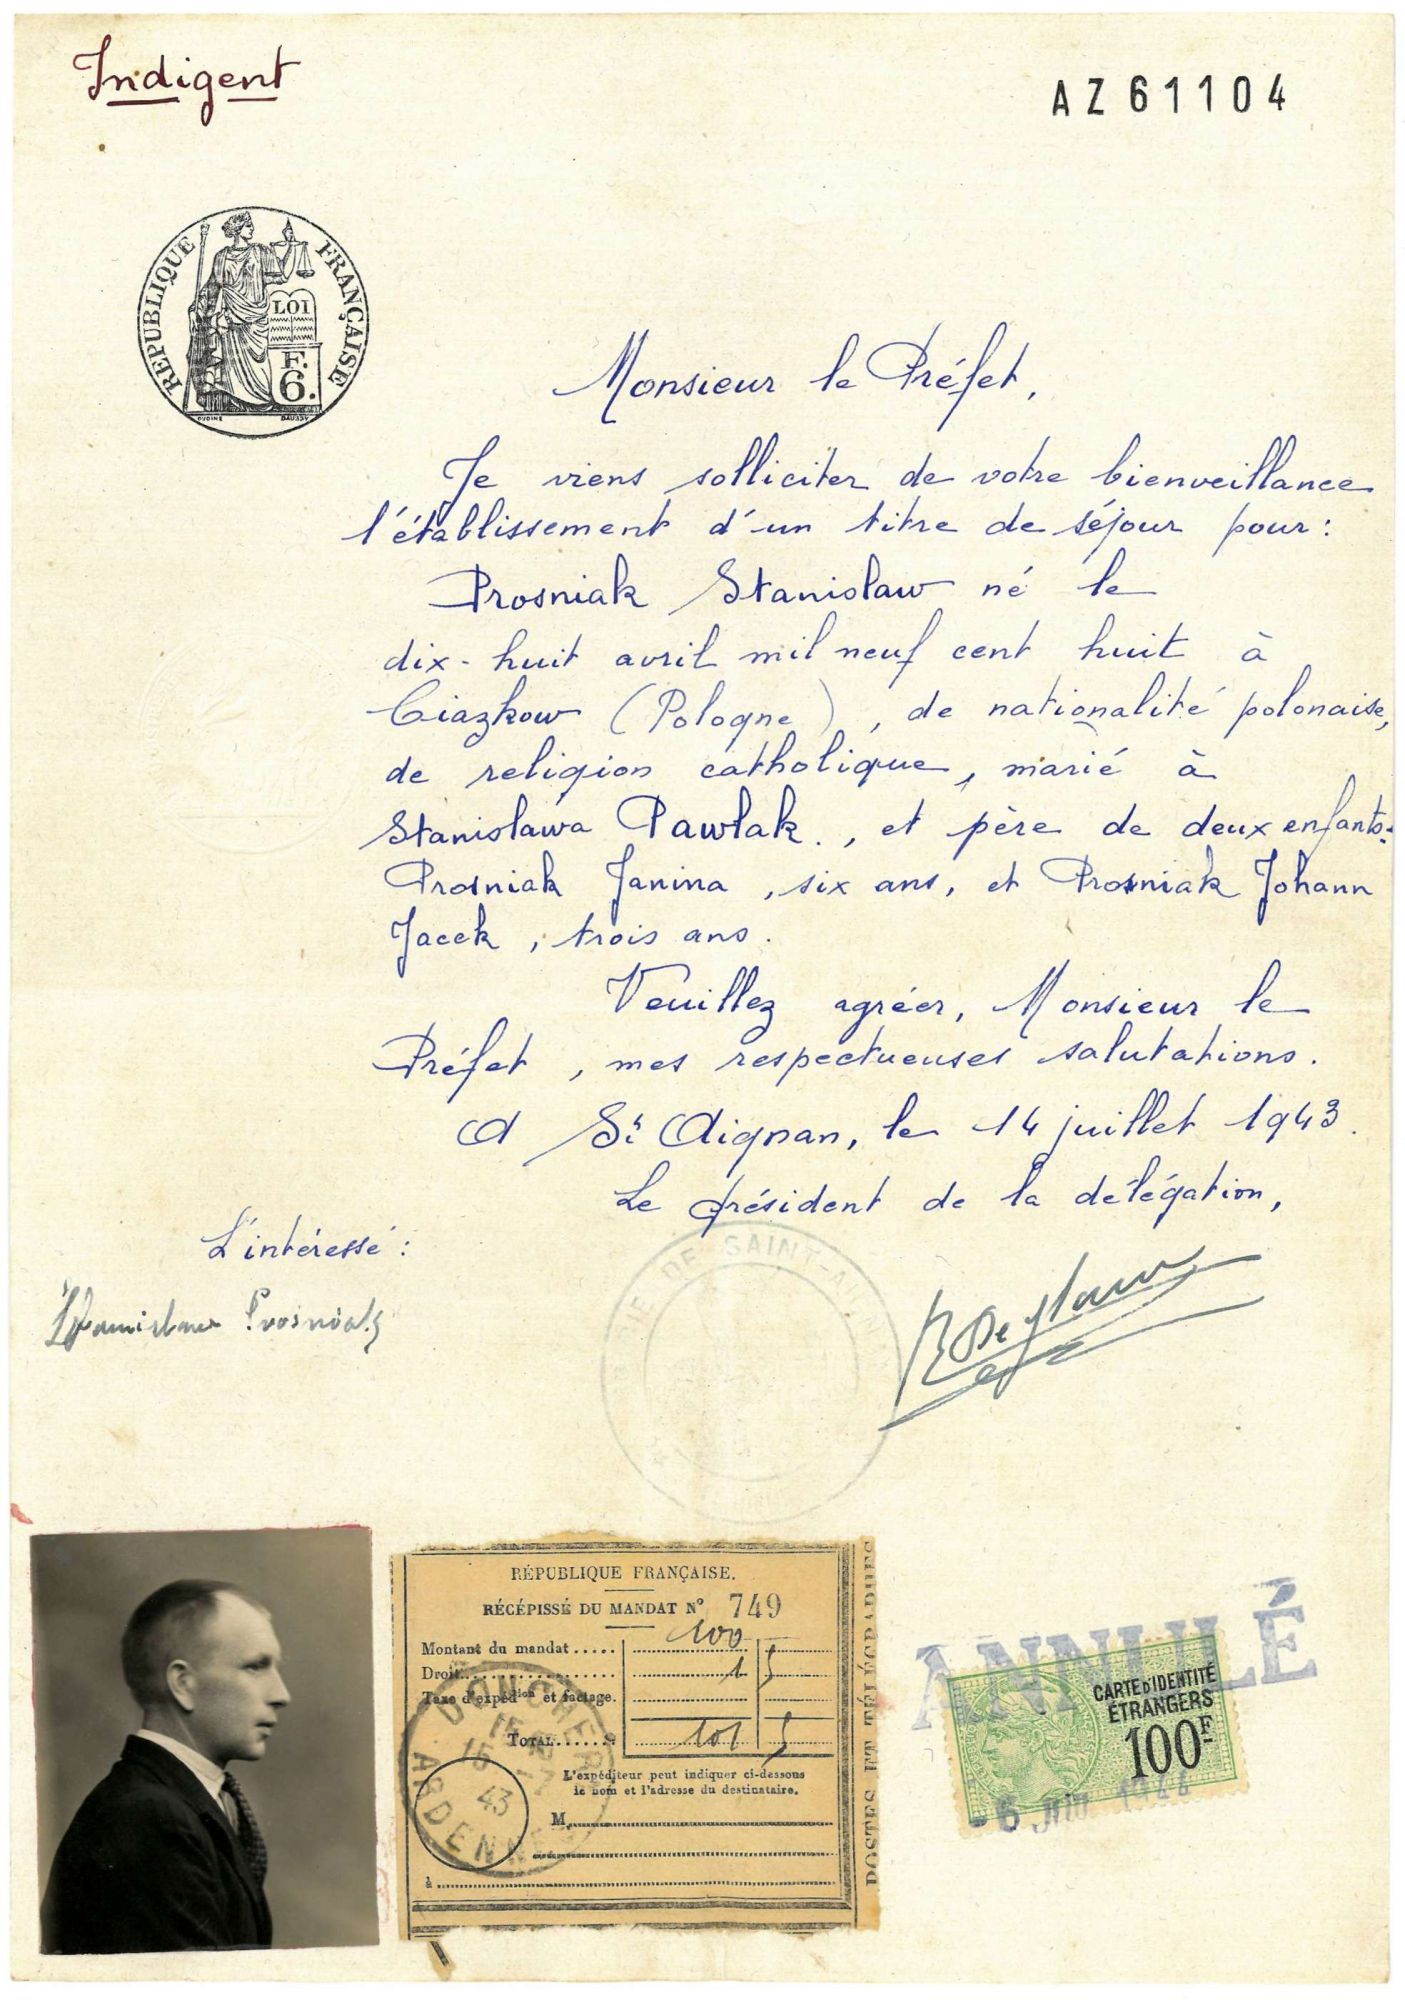 Indigent
AZ 61104
RÉPUBLIQUE FRANÇAISE
LOI
F.
6.
Monsieur le Préfet,
Je viens solliciter de votre bienveillance
l'établissement d'un titre de séjour pour :
Prosniak Stanislaw né le
dix-huit avril mil neuf cent huit à
Ciazkow (Pologne), de nationalité polonaise,
de religion catholique, marié à
Stanislawa Pawlak., et père de deux enfants.
Prosniak Janina, six ans, et Prosniak Johann
Jacek, trois ans.
Veuillez agréer, Monsieur le
Préfet, mes respectueuses salutations.
A St Aignan, le 14 juillet 1943.
Le président de la délégation,
L'intéressé :
Stanislaw Prosniak
DE SAINT-AIGNAN
RÉPUBLIQUE FRANÇAISE.
RÉCÉPISSÉ DU MANDAT N° 749
Montant du mandat ..... 100
Droit ..... 1
Taxe d'expédion et factage.
TOTAL ...... 101
L'expéditeur peut indiquer ci-dessous
le nom et l'adresse du destinataire.
M.
à
POSTES ET TÉLÉGRAPHES
DONCHERY
43
ARDENNES
ANNULÉ
CARTE D'IDENTITÉ
ÉTRANGERS
100F
1944